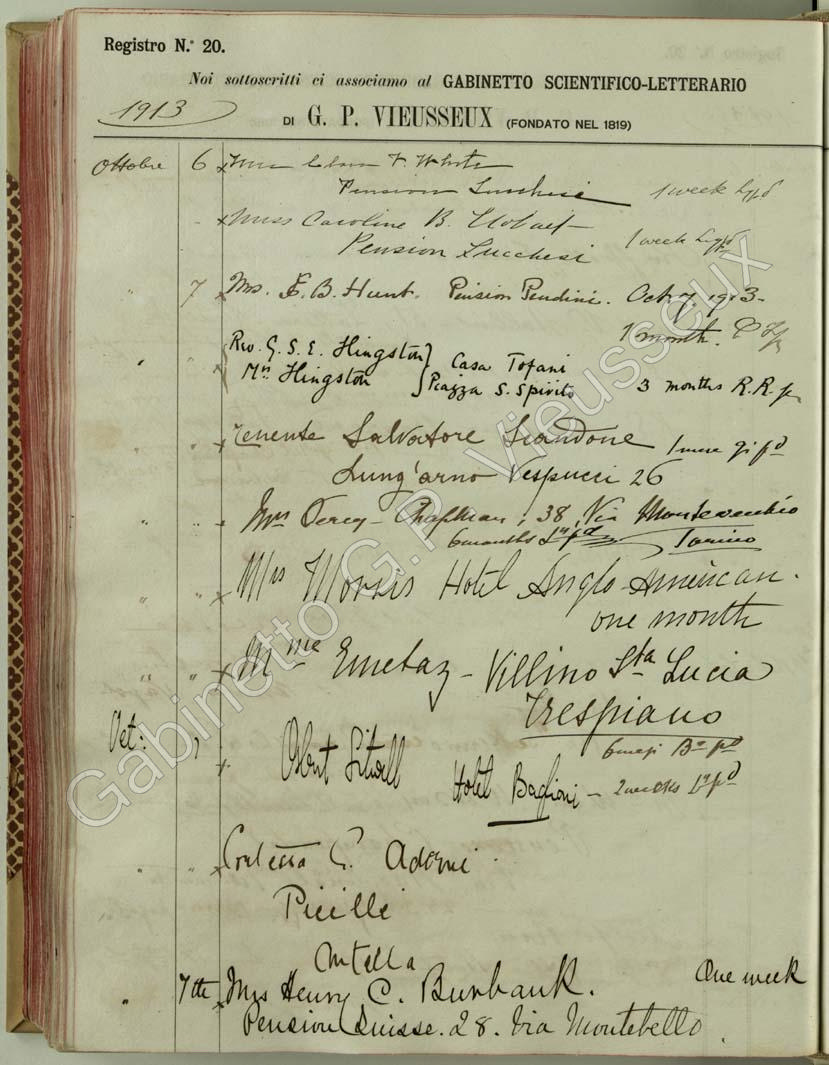 Registro N.° 20.
Noi sottoscritti ci associamo al GABINETTO SCIENTIFICO-LETTERARIO
1913
DI G. P. VIEUSSEUX (FONDATO NEL 1819)
Ottobre 6 x F. White
Pension Lucchesi 1 week
" x Miss Caroline B.
Pension Lucchesi 1 week
" 7 x Mrs. E. B. Hunt. Pension Pendini. Oct 7, 1913-
1 month.
Rev. G. S. E. Hingston } Casa Tofani
" " x Mrs Hingston } Piazza S. Spirito 3 months R. R.
" " x Tenente Salvatore 1 mese
Lung'arno Vespucci 26
" " x Mrs Percy Chapman, 38, Via Montevecchio
6 months Torino
" " x Mrs Morris Hotel Anglo-American.
one month
" " x Mme Emetaz - Villino Sta Lucia
Trespiano
6 mesi
Oct: 7 x Osbert Sitwell Hotel Baglioni - 2 weeks
" " x Contessa C.
Picille
Antella
" 7th x Mrs Henry C. Burbank. One week
Pension Suisse. 28. Via Montebello.
Gabinetto G.P. Vieusseux